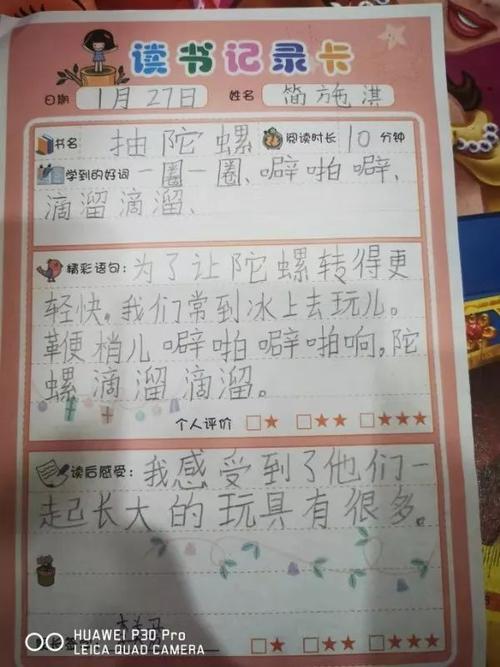 读书记录卡
日期 1月27日 姓名 简施淇
书名 抽陀螺 阅读时长 10 分钟
学到的好词 一圈一圈、噼啪噼、
滴溜滴溜、
精彩语句：为了让陀螺转得更
轻快，我们常到冰上去玩儿。
鞭梢儿噼啪噼啪响，陀
螺滴溜滴溜。
个人评价 □★ □★★ □★★★
读后感受：我感受到了他们一
起长大的玩具有很多。
□★ □★★ □★★★
HUAWEI P30 Pro
LEICA QUAD CAMERA